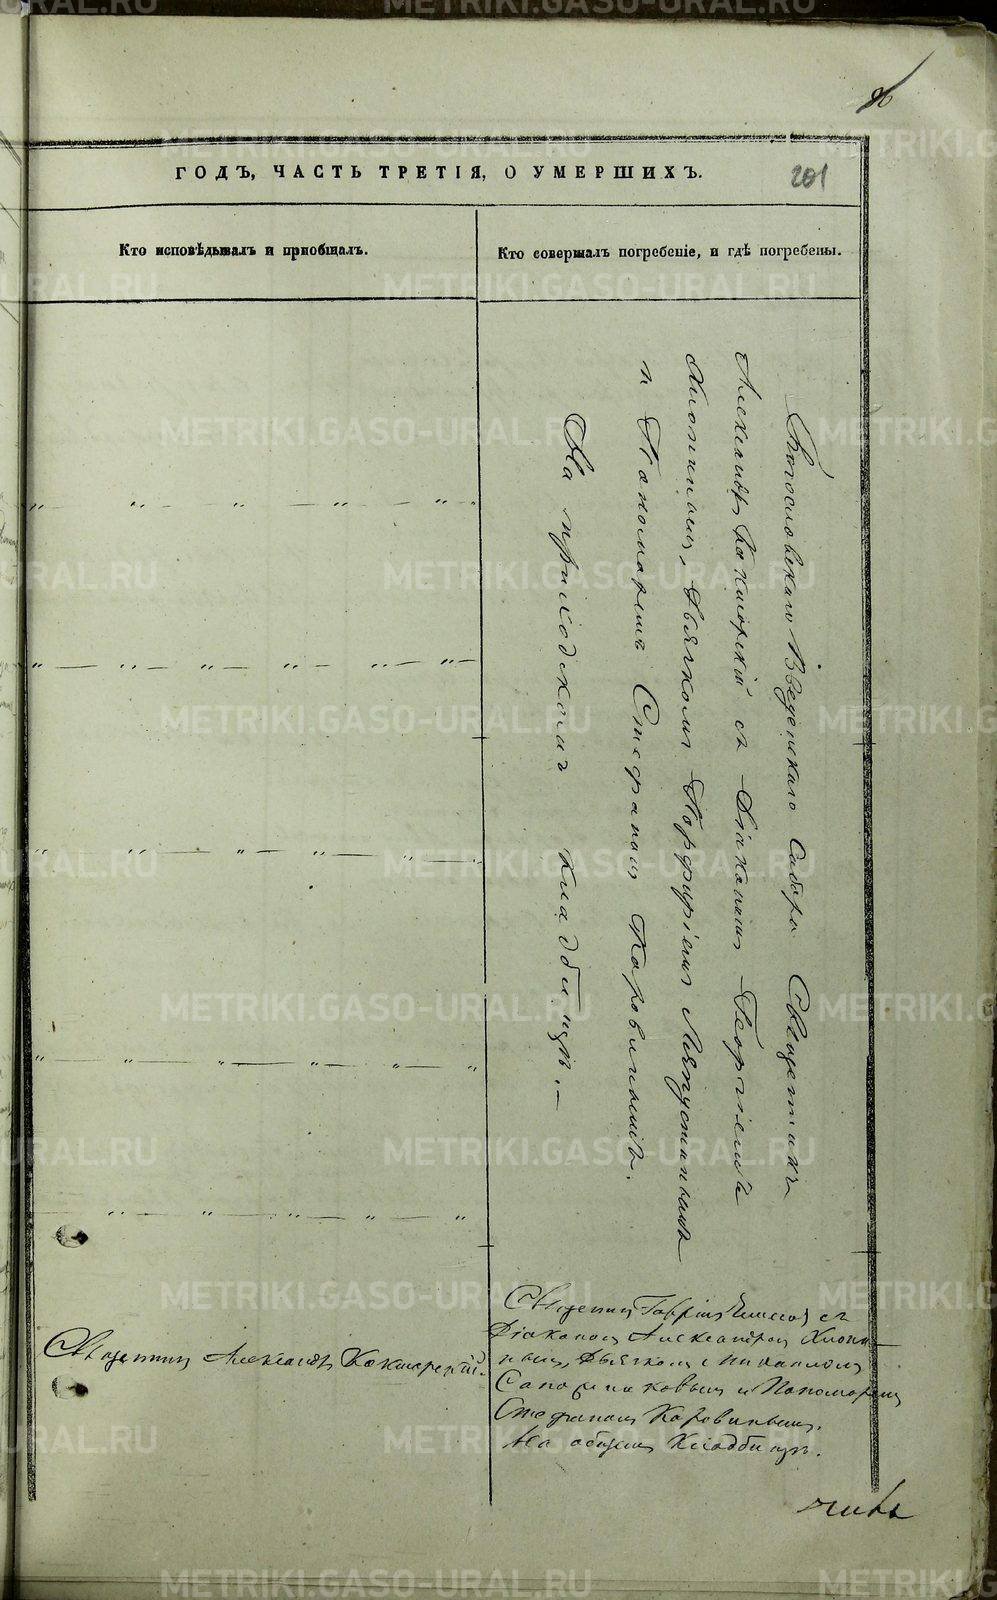 96
ГОДЪ, ЧАСТЬ ТРЕТІЯ, О УМЕРШИХЪ.
201
Кто исповѣдывалъ и пріобщалъ.
Кто совершалъ погребеніе, и гдѣ погребены.
Богословскаго Введенскаго Собора Священникъ
Александръ Кокшарскій съ Діакономъ Георгіемъ
Хлопинымъ, Дьячкомъ Порфиріемъ
и Пономаремъ Стефаномъ Коровинымъ.
На приходскомъ кладбищѣ.
Священникъ Александръ Кокшарскій.
Священникъ съ
Діакономъ Александромъ Хлопи-
нымъ, Дьячкомъ Михаиломъ
Сапожниковымъ и Пономаремъ
Стефаномъ Коровинымъ.
На общемъ Кладбищѣ.
METRIKI.GASO-URAL.RU